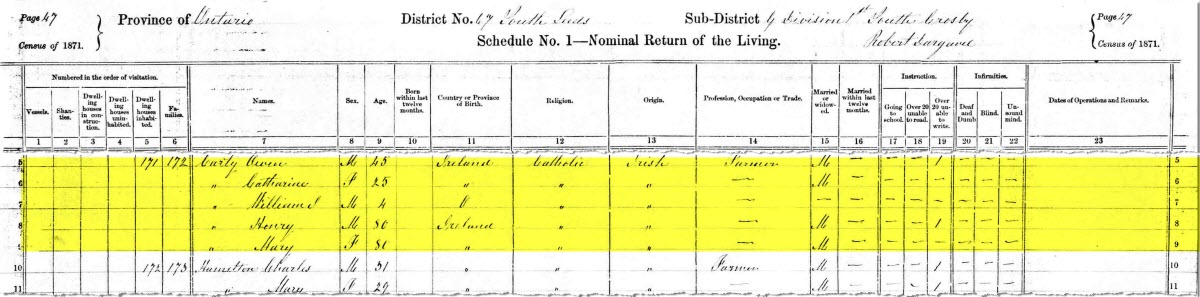 Page 47 Province of Ontario District No. 67 South Leeds Sub-District g Division 1st South Crosby Page 47
Census of 1871. Schedule No. 1—Nominal Return of the Living. Robert Census of 1871.
Numbered in the order of visitation. Names. Sex. Age. Born within last twelve months. Country or Province of Birth. Religion. Origin. Profession, Occupation or Trade. Married or widowed. Married within last twelve months. Instruction. Infirmities. Dates of Operations and Remarks.
Vessels. Shanties. Dwelling houses in construction. Dwelling houses uninhabited. Dwelling houses inhabited. Families. Going to school. Over 20 unable to read. Over 20 unable to write. Deaf and Dumb Blind. Unsound mind.
1 2 3 4 5 6 7 8 9 10 11 12 13 14 15 16 17 18 19 20 21 22 23
5 171 172 Carly Owen M 45 Ireland Catholic Irish Farmer M — — — 1 — — — 5
6 " Catharine F 25 " " " — M — — — — — — — 6
7 " William M 4 O " " — — — — — — — — — 7
8 " Henry M 80 Ireland " " — M — — — 1 — — — 8
9 " Mary F 80 " " " — M — — — — — — — 9
10 172 173 Hamelton Charles M 31 " " " Farmer M — — — 1 — — — 10
11 " Mary F 29 " " " — M — — — 1 — — — 11